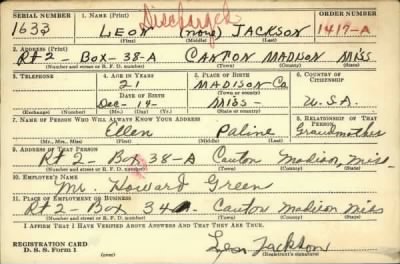 SERIAL NUMBER 1. NAME (Print) ORDER NUMBER
Discharged
1633 LEON (none) JACKSON 1417-A
(First) (Middle) (Last)
2. ADDRESS (Print)
Rt 2- Box-38-A CANTON MADISON MISS
(Number and street or R. F. D. number) (Town) (County) (State)
3. TELEPHONE 4. AGE IN YEARS 5. PLACE OF BIRTH 6. COUNTRY OF CITIZENSHIP
21 MADISON Co.
DATE OF BIRTH (Town or county)
Dec-14- MISS- U.S.A.
(Exchange) (Number) (Mo.) (Day) (Yr.) (State or country)
7. NAME OF PERSON WHO WILL ALWAYS KNOW YOUR ADDRESS 8. RELATIONSHIP OF THAT PERSON
Ellen Paline Grandmother
(Mr., Mrs., Miss) (First) (Middle) (Last)
9. ADDRESS OF THAT PERSON
Rt 2- Box 38-A Canton Madison, Miss.
(Number and street or R. F. D. number) (Town) (County) (State)
10. EMPLOYER'S NAME
Mr. Howard Green
11. PLACE OF EMPLOYMENT OR BUSINESS
Rt 2- Box 34 Canton Madison Miss
(Number and street or R. F. D. number) (Town) (County) (State)
I AFFIRM THAT I HAVE VERIFIED ABOVE ANSWERS AND THAT THEY ARE TRUE.
REGISTRATION CARD
D. S. S. Form 1 Leon Jackson
(Registrant's signature)